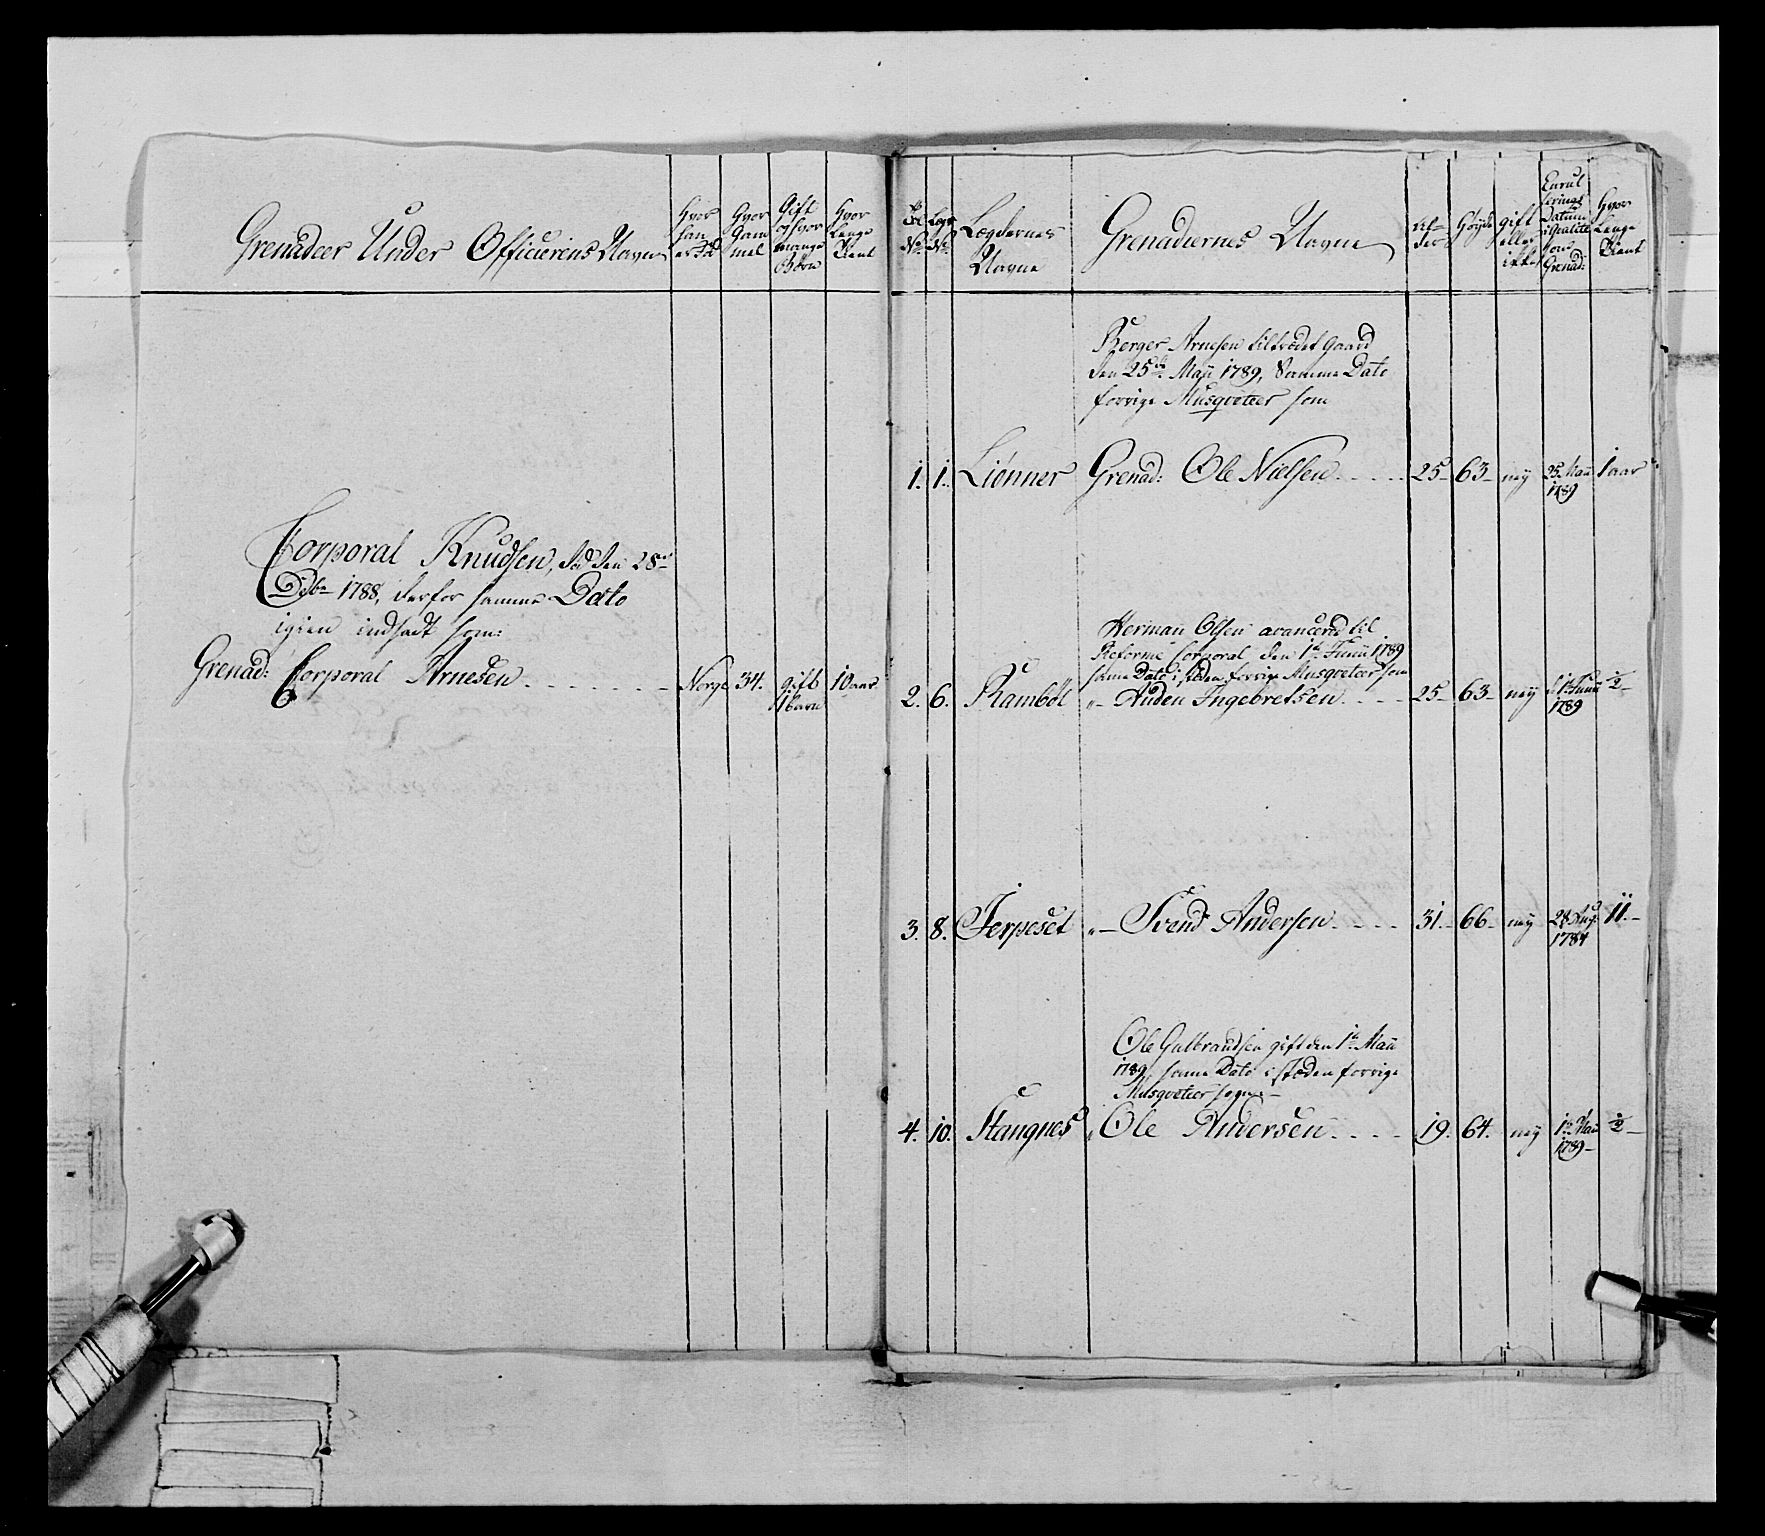 Grenadeer Under Officierens Navne
Hvor
han
er
Hvor
Gam
mel
Gift
og hvor
mange
Børn
Hvor
Lenge
Tient
Corporal Knudsen, død den 28de
1788, derfor samme Dato
igien indsadt som:
Grenad: Corporal Arnesen Norge 34. gift 10 aar
1 barn
No. No.
Lægdernes
Navne
Grenadiernes Navne
Al-
der
Høyde
gift
eller
ikke
Enrul
lerings
Datum
i Qvalitet
som
Grenad:
Hvor
Lenge
Tient
Berger Arnesen tiltrædet Gaard
den 25de Maji 1789, Samme Dato
forrige Musqveteer som
1. 1. Liønner Grenad: Ole Nielsen 25 63 nej 25 Maii 1 aar
1789
Herman Olsen avancered til
Reforme Corporal den 1te Junii 1789
samme Dato i stæden forrige Musqveteer som
2. 6. Rambøl "– Auden Ingebretsen 25 63 nej d 1te Junii ½
1789
3. 8. Jerpeset "– Svend Andersen 31 66 nej 28 Aug. 11.
1784
Ole Gulbrandsen gift den 1te Maii
1789, samme Dato i stæden forrige
Musqveteer
4. 10. Stangnes " Ole Andersen 19. 64. nej 1te Maii ½
1789